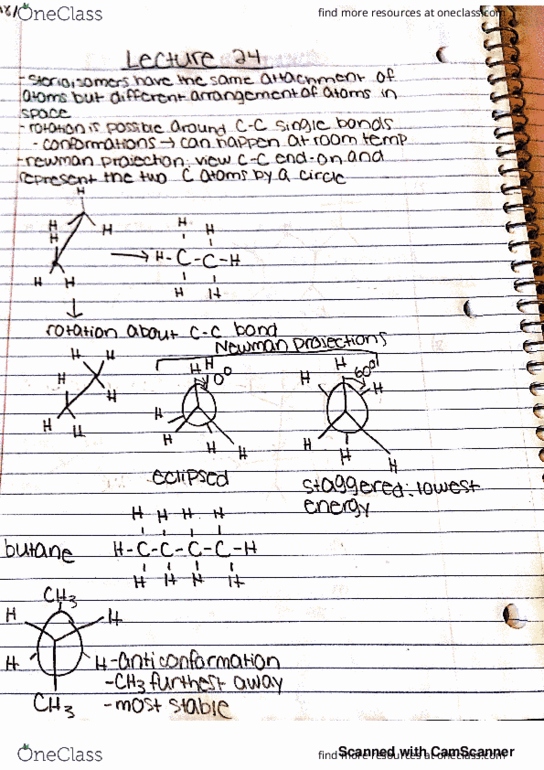 OneClass
find more resources at oneclass.com
Lecture 24
- sterioisomers have the same attachment of
atoms but different arrangement of atoms in
space
- rotation is possible around C-C single bonds
- conformations → can happen at room temp
- newman projection: view C-C end-on and
represent the two C atoms by a circle
H
H
H H
H
H H
H H
→ H-C-C-H
H H
↓
rotation about C-C bond
Newman projections
H H
H
H
H
H
H H
0°
H
H
H
H
eclipsed
H
60°
H
H
H
H
H
staggered: lowest
energy
H H H H
butane H-C-C-C-C-H
H H H H
CH3
H H
H H
CH3
- anti conformation
- CH3 furthest away
- most stable
OneClass
find more resources at oneclass.com
Scanned with CamScanner